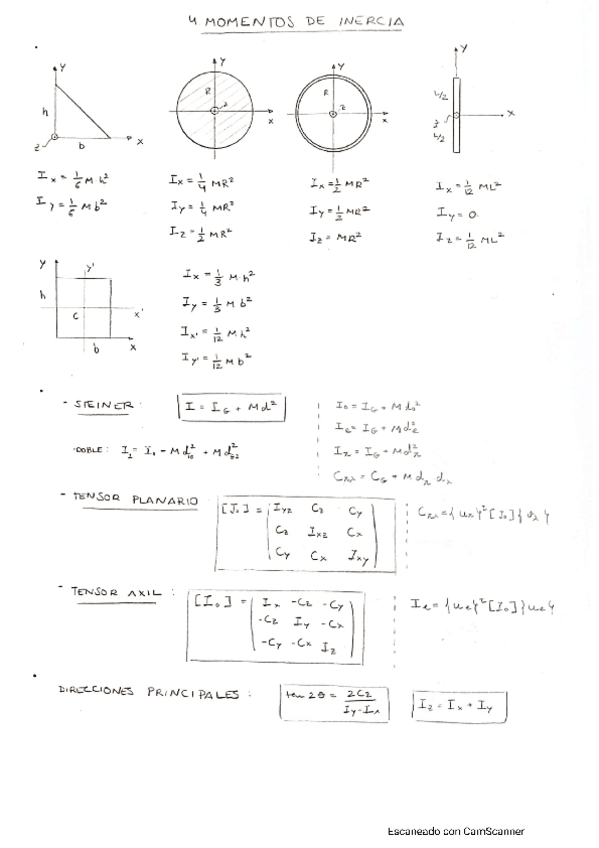 4 MOMENTOS DE INERCIA
y
h
z
b
x
y
R
z
x
y
R
z
x
y
L/2
z
L/2
x
Ix = 1/6 M h²
Iy = 1/6 M b²
Ix = 1/4 MR²
Iy = 1/4 MR²
Iz = 1/2 MR²
Ix = 1/2 MR²
Iy = 1/2 MR²
Iz = MR²
Ix = 1/12 ML²
Iy = 0
Iz = 1/12 ML²
y
y'
h
c
x'
b
x
Ix = 1/3 M·h²
Iy = 1/3 M b²
Ix' = 1/12 M h²
Iy' = 1/12 M b²
- STEINER:
I = IG + Md²
I0 = IG + Md0²
Ie = IG + Mde²
Iπ = IG + Mdπ²
Cπλ = CG + M dπ dλ
·DOBLE: I2 = I1 - Md1G² + MdG2²
- TENSOR PLANARIO
[J0] = Iyz Cz Cy
Cz Ixz Cx
Cy Cx Ixy
- TENSOR AXIL:
[I0] = Ix -Cz -Cy
-Cz Iy -Cx
-Cy -Cx Iz
DIRECCIONES PRINCIPALES:
tan 2θ = 2Cz / Iy-Ix
Iz = Ix + Iy
Escaneado con CamScanner